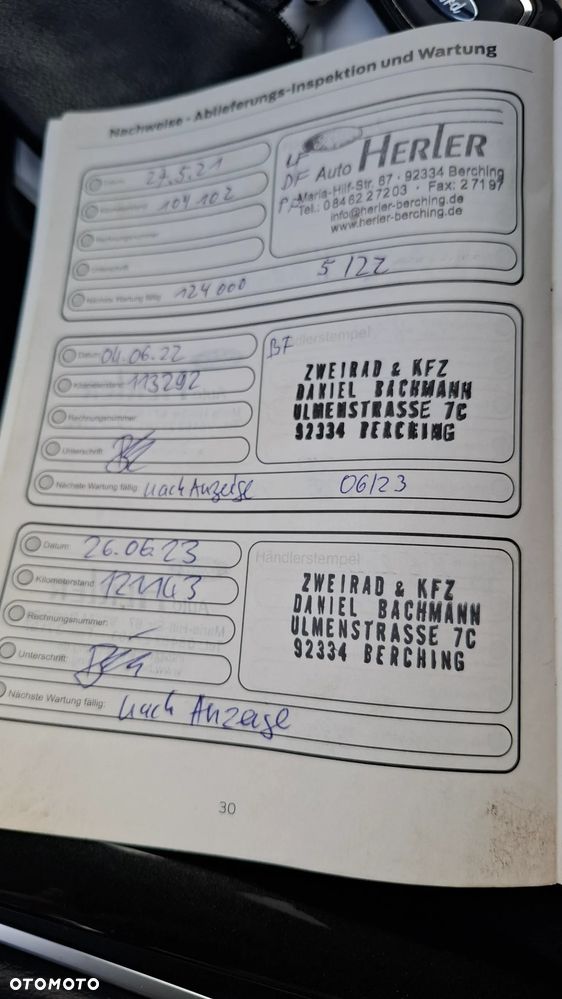 Ford
Nachweise - Ablieferungs-Inspektion und Wartung
27.5.21
104 102
Unterschrift:
Nächste Wartung fällig: 124 000 5/22
LF
DF Auto HERLER
PF Maria-Hilf-Str. 67 · 92334 Berching
Tel.: 08462 27203 · Fax: 27197
info@herler-berching.de
www.herler-berching.de
Datum: 04.06.22
Kilometerstand: 113292
Rechnungsnummer:
Unterschrift:
Nächste Wartung fällig: nach Anzeige 06/23
BF Händlerstempel
ZWEIRAD & KFZ
DANIEL BACHMANN
ULMENSTRASSE 7C
92334 BERCHING
Datum: 26.06.23
Kilometerstand: 121143
Rechnungsnummer:
Unterschrift:
Nächste Wartung fällig: nach Anzeige
Händlerstempel
ZWEIRAD & KFZ
DANIEL BACHMANN
ULMENSTRASSE 7C
92334 BERCHING
30
OTOMOTO